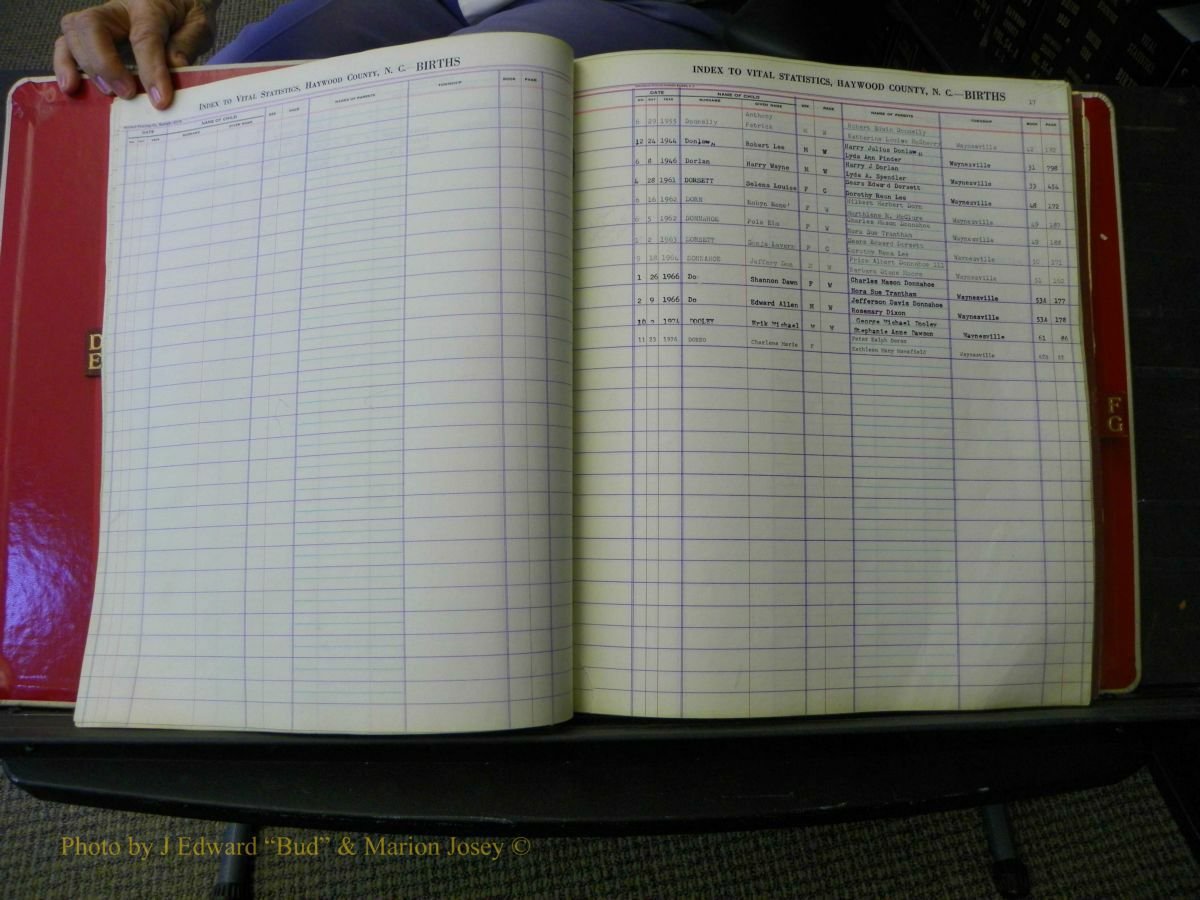 INDEX TO VITAL STATISTICS, HAYWOOD COUNTY, N. C.—BIRTHS
DATE NAME OF CHILD SEX RACE NAMES OF PARENTS TOWNSHIP BOOK PAGE
SURNAME GIVEN NAME
INDEX TO VITAL STATISTICS, HAYWOOD COUNTY, N. C.—BIRTHS 17
DATE NAME OF CHILD SEX RACE NAMES OF PARENTS TOWNSHIP BOOK PAGE
MO. DAY YEAR SURNAME GIVEN NAME
Anthony
6 29 1955 Donnelly Patrick M W Robert Edwin Donnelly
Katharine Louise Waynesville 42 182
12 24 1944 Robert Lee M W Harry Julius
Lyda Ann Pinder Waynesville 31 798
6 8 1946 Dorlan Harry Wayne M W Harry J Dorlan
Lyda A. Spendler Waynesville 33 454
4 28 1961 DORSETT Selena Louise F C Sears Edward Dorsett
Dorothy Raun Lee Waynesville 48 172
6 16 1962 DORN Robyn Rene' F W Hilbert Herbert Dorn
McClure Waynesville 49 187
6 5 1962 DONNAHOE F W Charles Mason Donnahoe
Nora Sue Trantham Waynesville 49 188
2 1963 DORSETT F C Sears Edward Dorsett
Dorothy Lee Waynesville 50 171
9 18 1964 DONNAHOE Jeffery M W Price Albert Donnahoe III
Barbara Diane Moore Waynesville 51
1 26 1966 Do Shannon Dawn F W Charles Mason Donnahoe
Nora Sue Trantham Waynesville 53A 177
2 9 1966 Do Edward Allen M W Jefferson Davis Donnahoe
Rosemary Dixon Waynesville 53A 178
10 1974 DOOLEY Erik Michael M W George Michael Dooley
Stephanie Anne Dawson Waynesville 61 86
11 23 1976 Charlene Marie F Peter Ralph
Kathleen Mary Mansfield Waynesville
D
E
F
G
Photo by J Edward “Bud” & Marion Josey ©